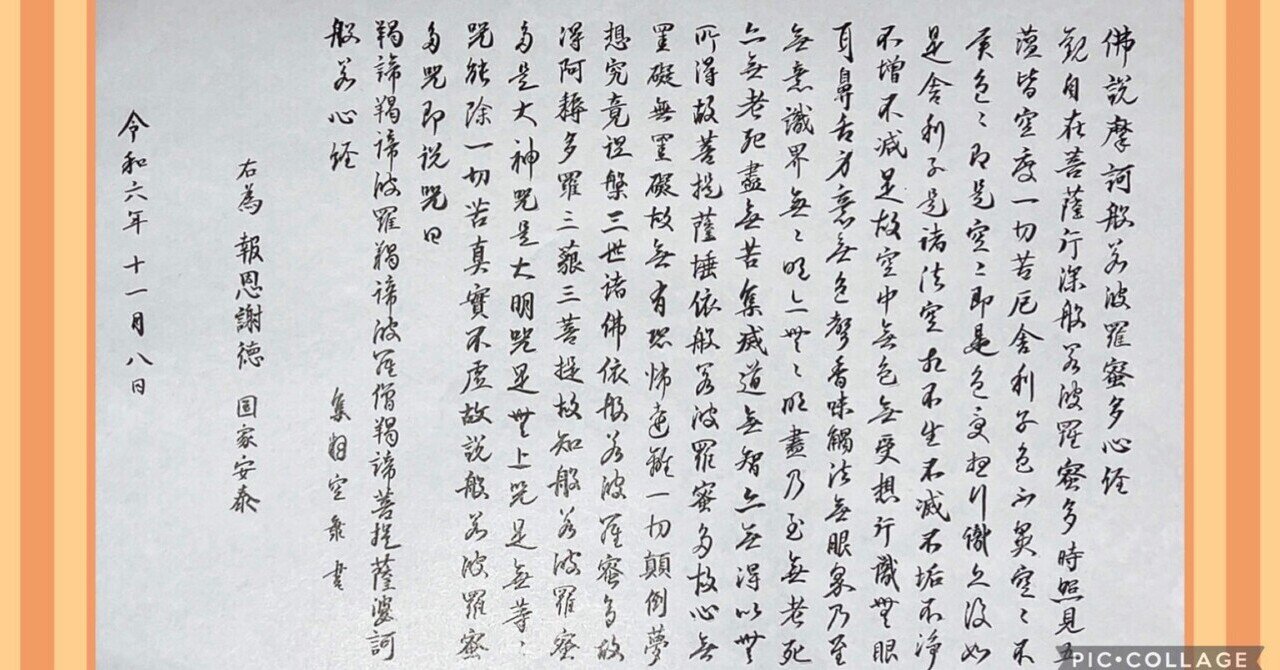 佛説摩訶般若波羅蜜多心経
観自在菩薩行深般若波羅蜜多時照見五
蘊皆空度一切苦厄舎利子色不異空〻不
異色〻即是空〻即是色受想行識亦復如
是舎利子是諸法空相不生不滅不垢不浄
不増不減是故空中無色無受想行識無眼
耳鼻舌身意無色聲香味觸法無眼界乃至
無意識界無〻明亦無〻明盡乃至無老死
亦無老死盡無苦集滅道無智亦無得以無
所得故菩提薩埵依般若波羅蜜多故心無
罣礙無罣礙故無有恐怖遠離一切顛倒夢
想究竟涅槃三世諸佛依般若波羅蜜多故
得阿耨多羅三藐三菩提故知般若波羅蜜
多是大神咒是大明咒是無上咒是無等〻
咒能除一切苦真實不虚故説般若波羅蜜
多咒即説咒曰
羯諦羯諦波羅羯諦波羅僧羯諦菩提薩婆訶
般若心経
書
右為 報恩謝徳 国家安泰
令和六年十一月八日
PIC•COLLAGE